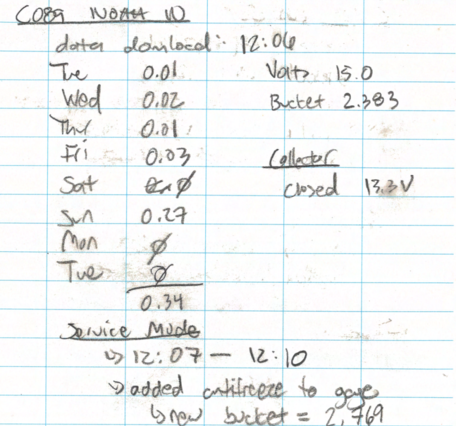 CO89 NOAH IV
data download: 12:06
Tue 0.01 Volts 15.0
Wed 0.02 Bucket 2.383
Thr 0.01
Fri 0.03 Collector
Sat ∅ closed 13.3V
Sun 0.27
Mon ∅
Tue ∅
0.34
Service Mode
↳ 12:07 – 12:10
↳ added antifreeze to gage
↳ new bucket = 2.769